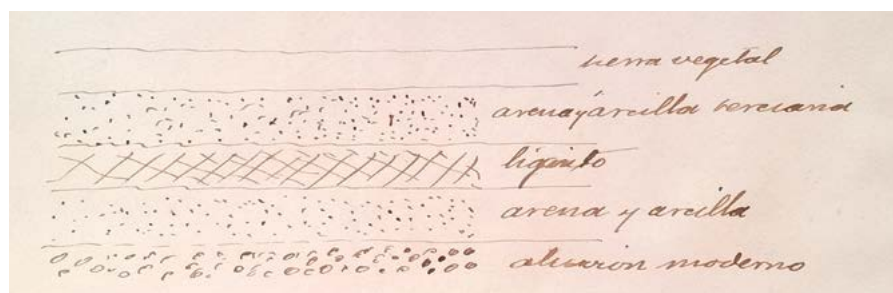 tierra vegetal
arena y arcilla terciaria
lignito
arena y arcilla
aluvion moderno